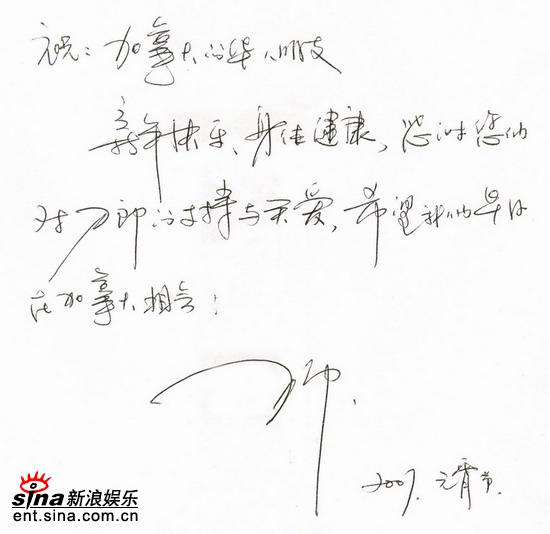 祝：加拿大的华人朋友
新年快乐、身体健康，感谢您们
对刀郎的支持与关爱，希望我们早日
在加拿大相会！
刀郎.
2007.元宵节.
sina新浪娱乐
ent.sina.com.cn